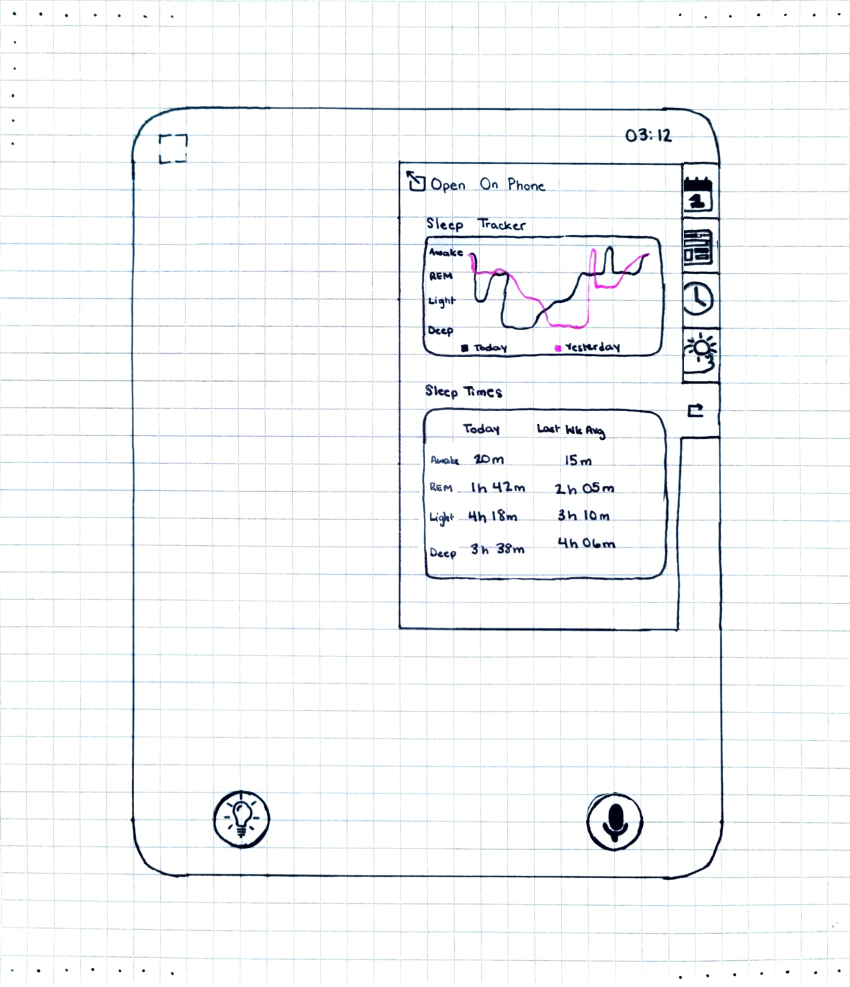 03:12
Open On Phone
Sleep Tracker
Awake
REM
Light
Deep
Today Yesterday
Sleep Times
Today Last Wk Avg
Awake 20m 15m
REM 1h 42m 2h 05m
Light 4h 18m 3h 10m
Deep 3h 38m 4h 06m